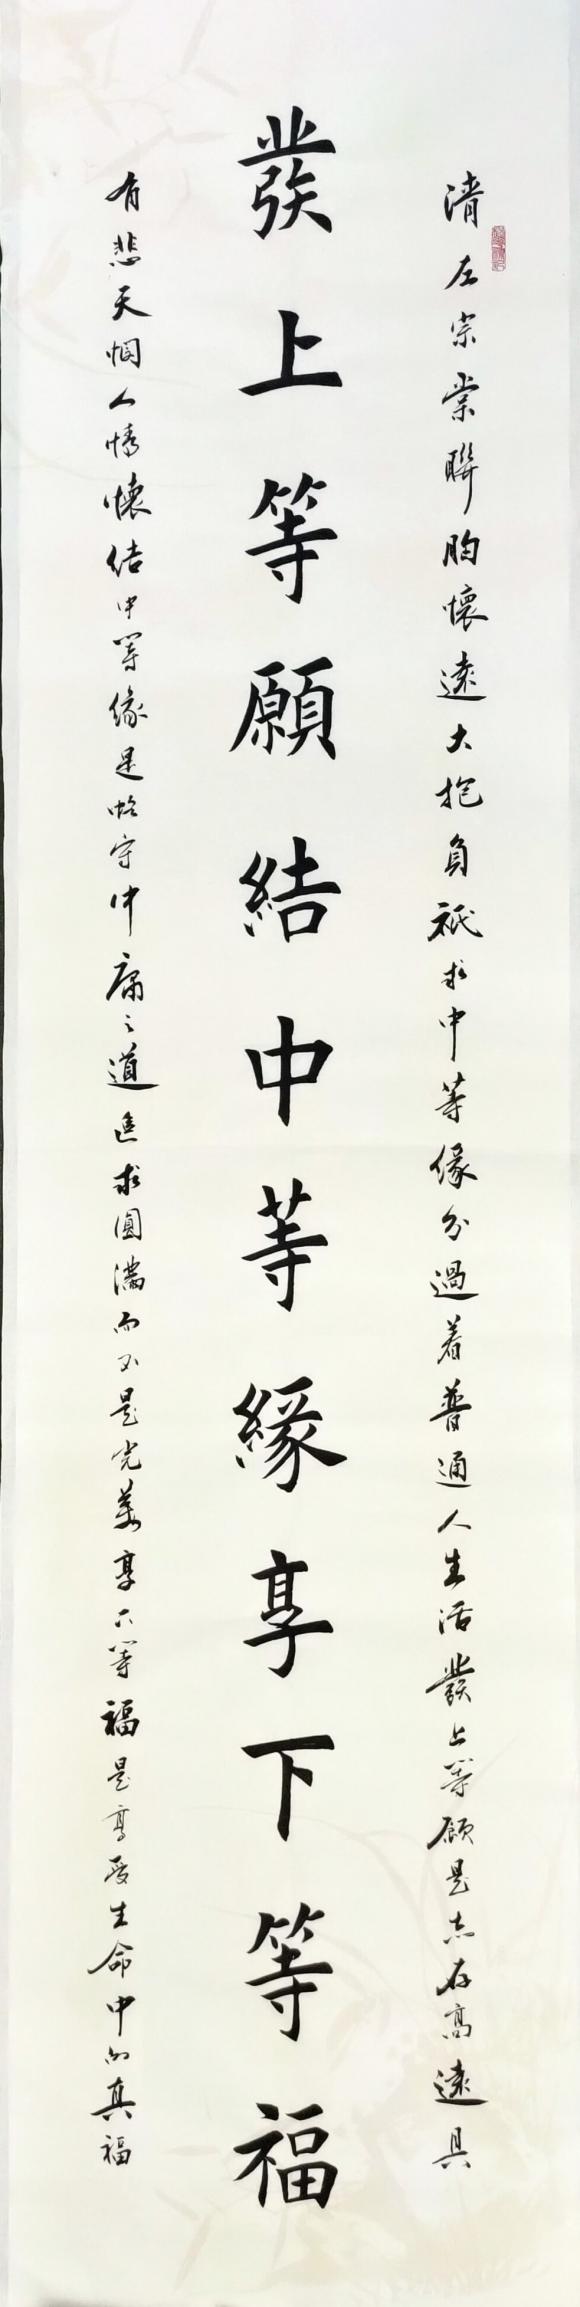 清左宗棠聯胸懷遠大抱負祇求中等緣分過着普通人生活發上等願是志存高遠具
發上等願結中等緣享下等福
有悲天憫人情懷結中等緣是恪守中庸之道追求圓滿而不是完美享下等福是享受生命中的真福